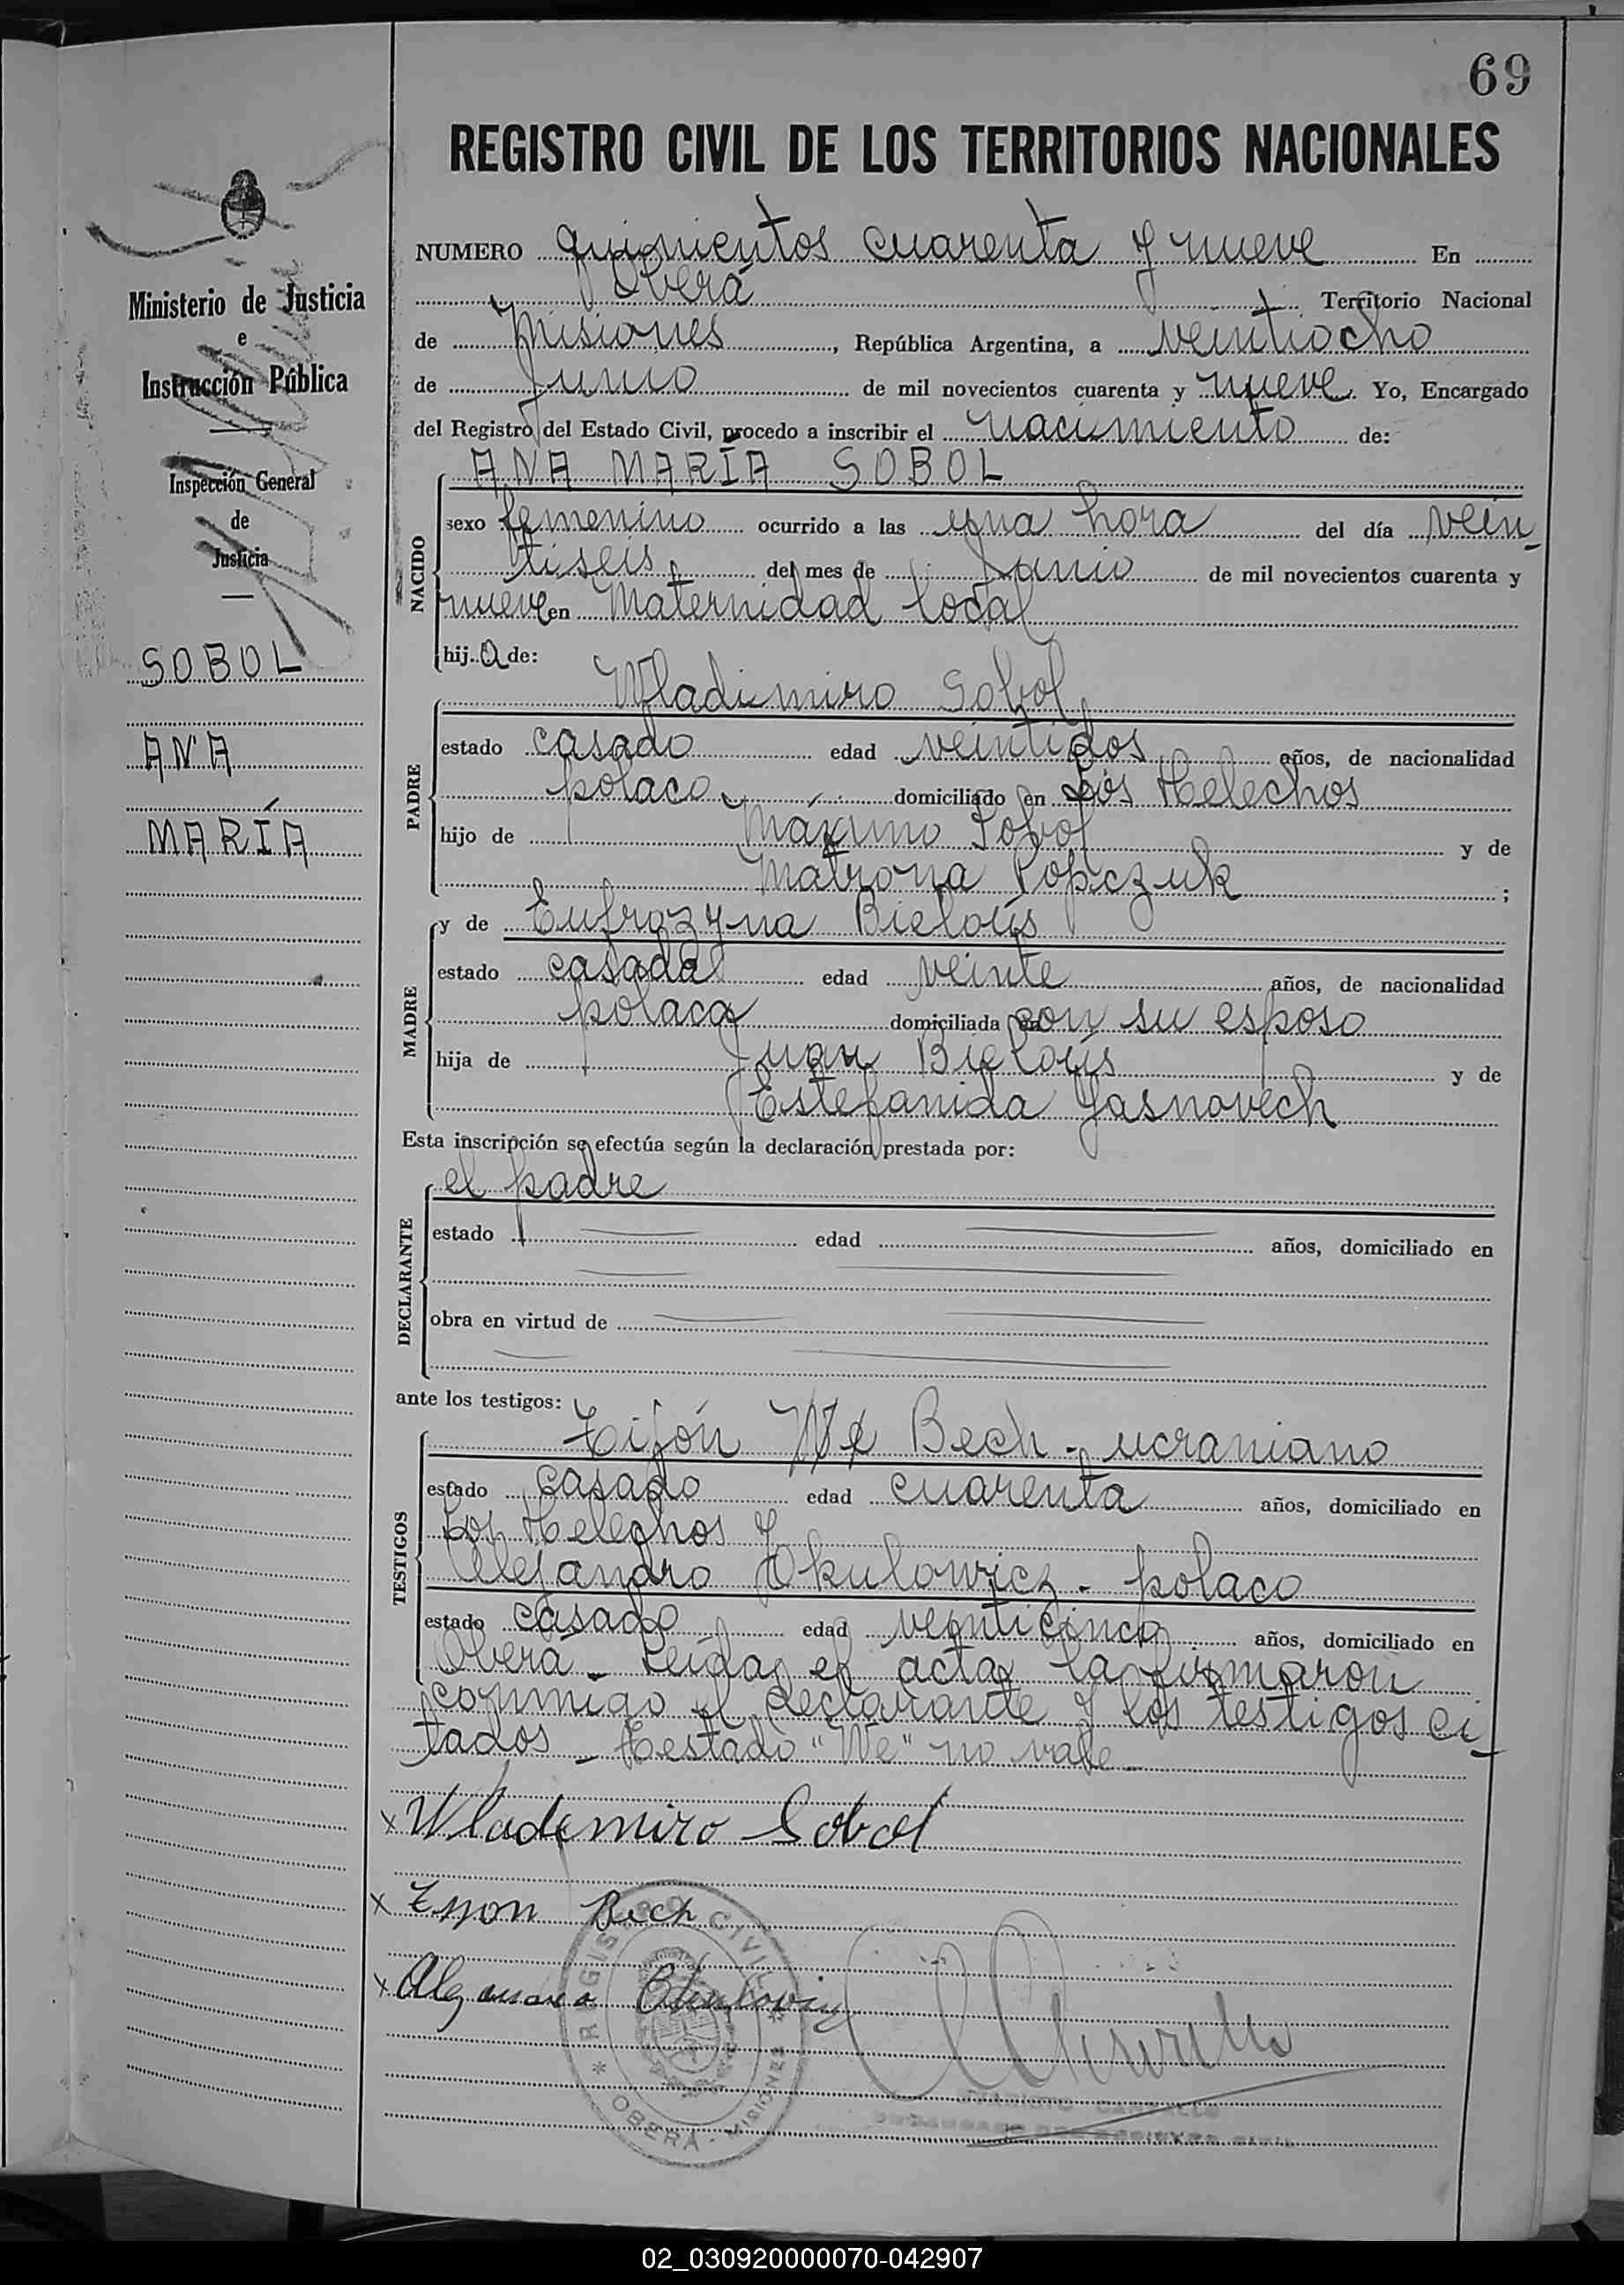 69
REGISTRO CIVIL DE LOS TERRITORIOS NACIONALES
Ministerio de Justicia
e
Instrucción Pública
Inspección General
de
Justicia
SOBOL
ANA
MARÍA
NUMERO quinientos cuarenta y nueve En
Oberá Territorio Nacional
de Misiones, República Argentina, a veintiocho
de Junio de mil novecientos cuarenta y nueve. Yo, Encargado
del Registro del Estado Civil, procedo a inscribir el nacimiento de:
ANA MARÍA SOBOL
NACIDO
sexo femenino ocurrido a las una hora del día vein-
tiseis del mes de Junio de mil novecientos cuarenta y
nueve en Maternidad local
hija de:
Wladimiro Sobol
PADRE
estado casado edad veintidos años, de nacionalidad
polaco domiciliado en Los Helechos
hijo de Máximo Sobol y de
Matrona Popczuk ;
MADRE
y de Eufrozyna Bieloús
estado casada edad veinte años, de nacionalidad
polaca domiciliada en con su esposo
hija de Juan Bieloús y de
Estefanida Jasnovech
Esta inscripción se efectúa según la declaración prestada por:
DECLARANTE
el padre
estado edad años, domiciliado en
obra en virtud de
ante los testigos:
TESTIGOS
Tijón We Bech - ucraniano
estado casado edad cuarenta años, domiciliado en
Los Helechos y
Alejandro Okulowicz - polaco
estado casado edad veinticinco años, domiciliado en
Oberá - Leída el acta la firmaron
conmigo el declarante y los testigos ci-
tados - Testado "We" no vale -
x Wlademiro Sobol
x Bech
x
REGISTRO CIVIL
* OBERÁ - MISIONES *
02_030920000070-042907